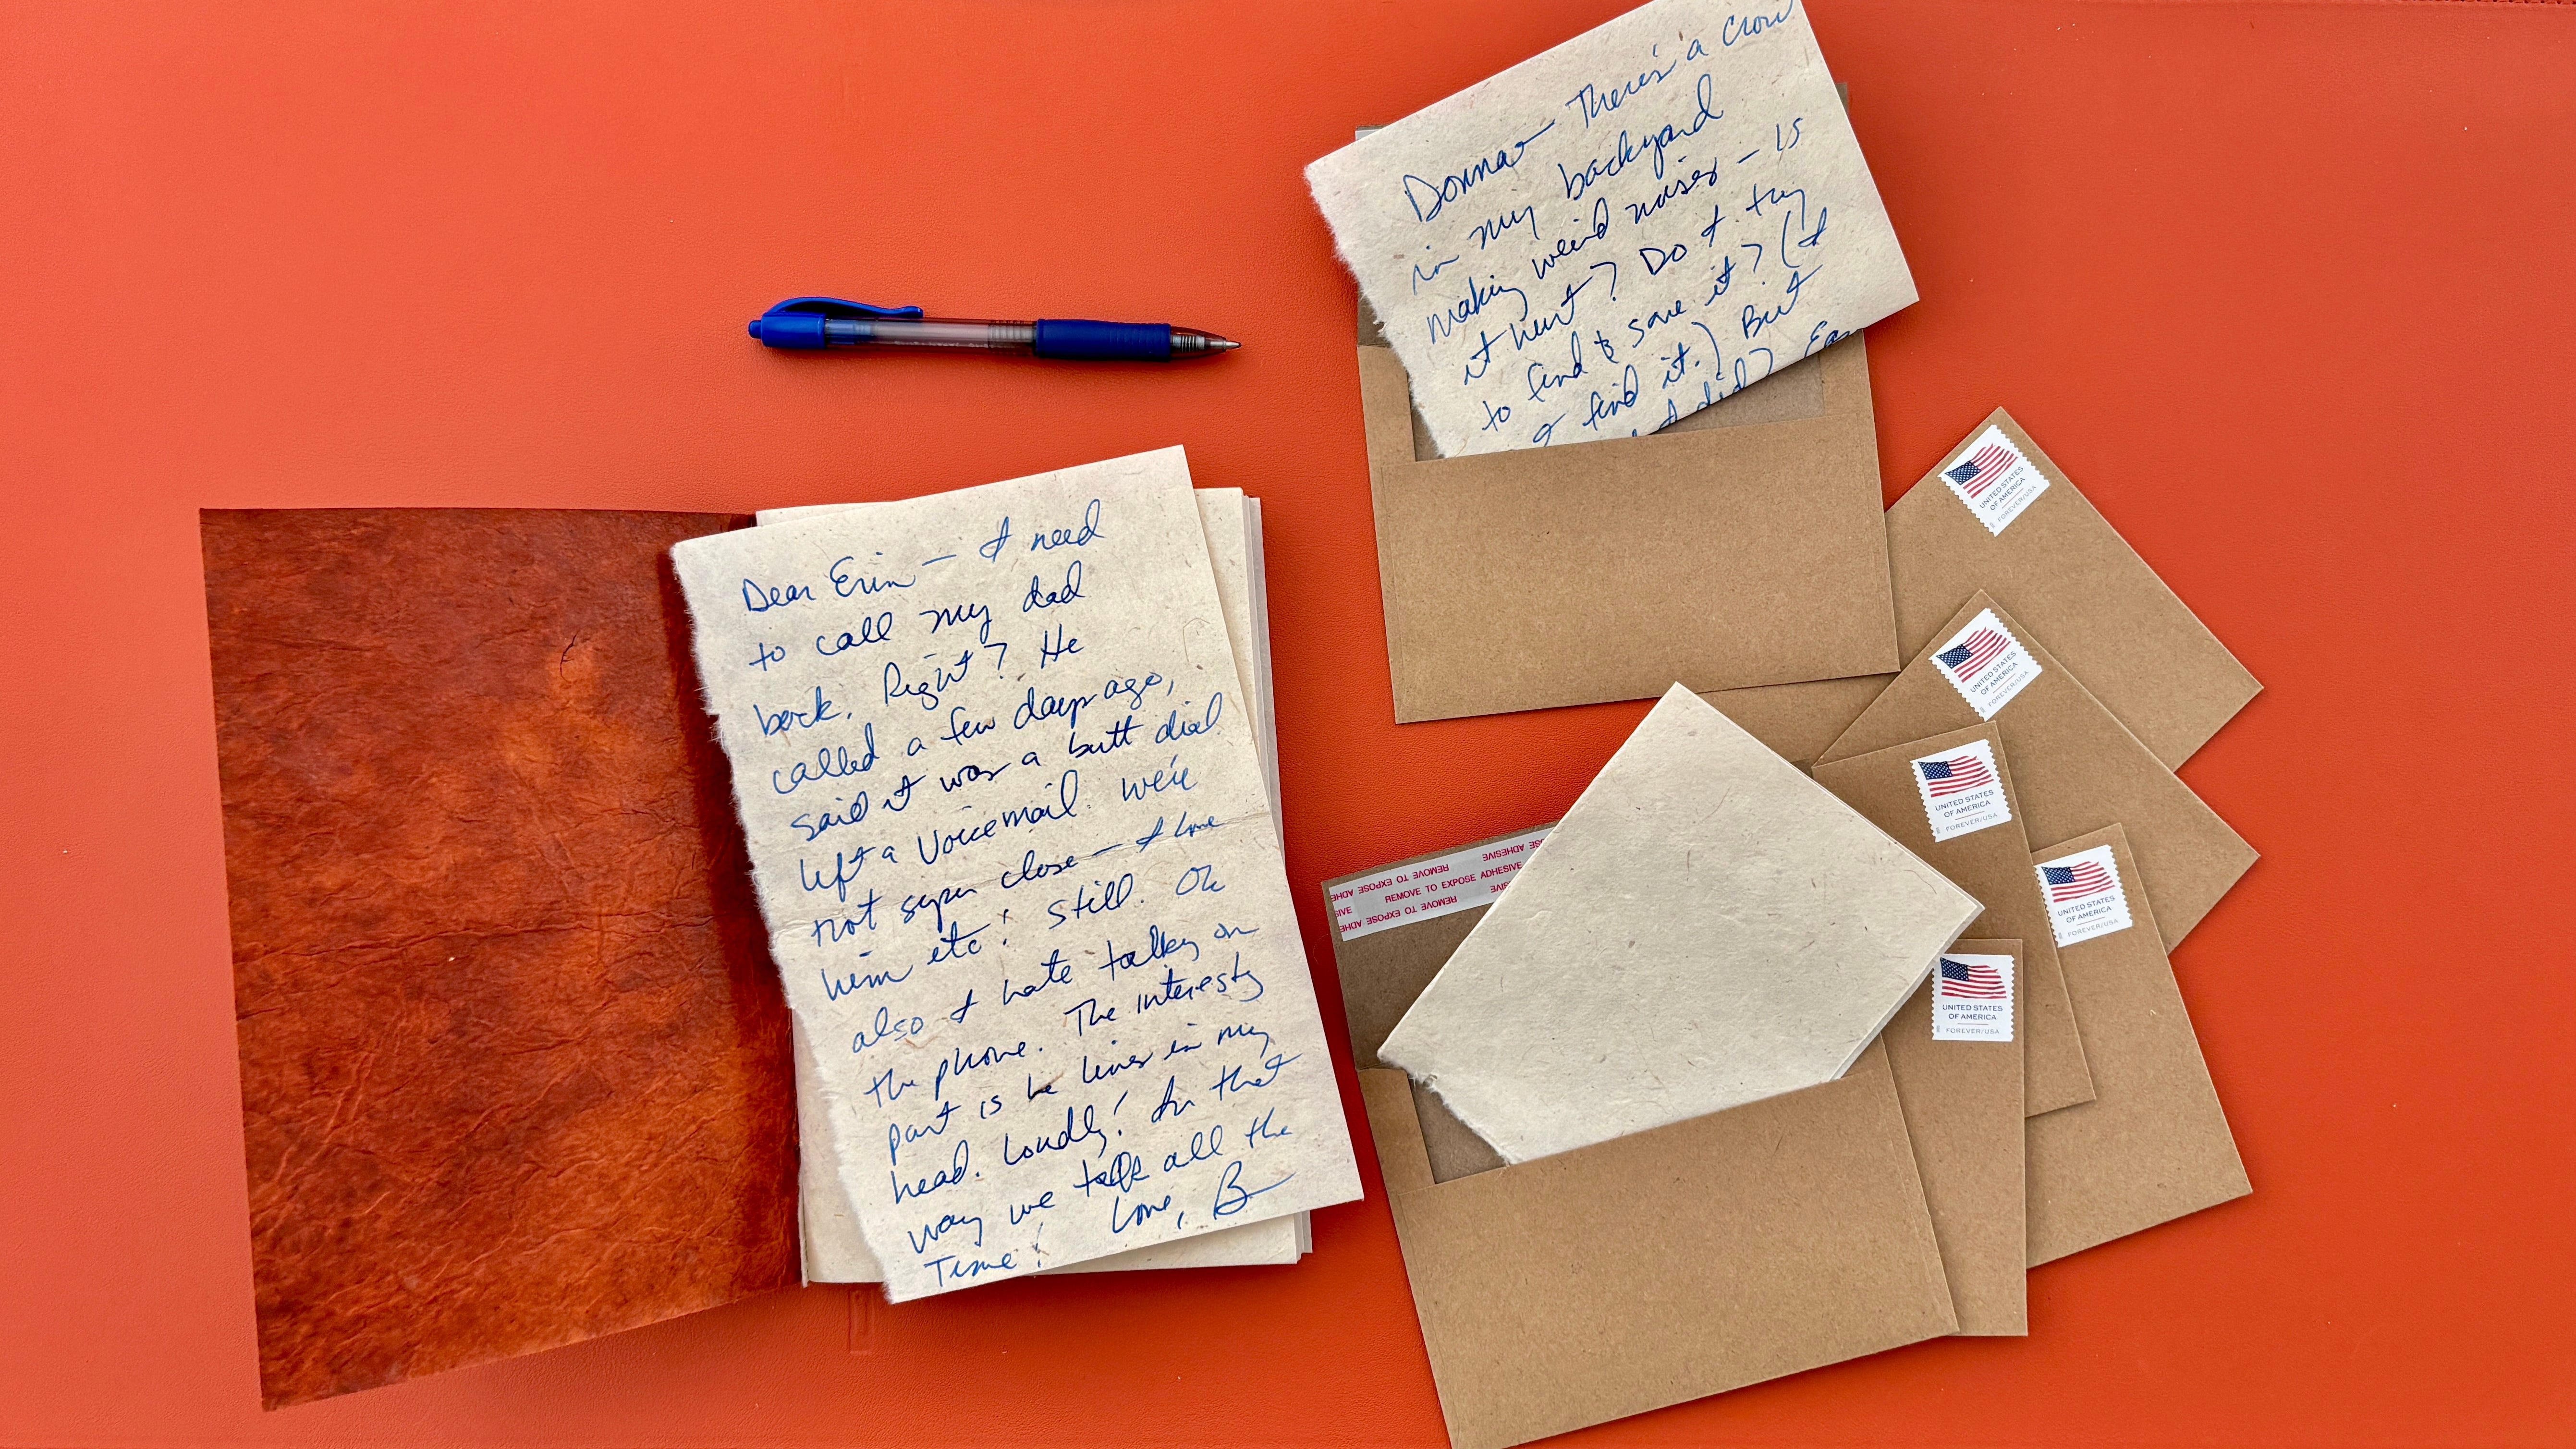 Dear Erin — I need
to call my dad
back. Right? He
called a few days ago,
said it was a butt dial
left a voicemail. We're
not super close — I love
him etc! Still. Ok
also I hate talking on
the phone. The interesting
part is he lives in my
head. Loudly! In that
way we talk all the
Time! Love, B
Donna — There's a crow
in my backyard
making weird noises — is
it hurt? Do I try
to find & save it? (I
find it.) But
I did?
UNITED STATES
OF AMERICA
FOREVER/USA
UNITED STATES
OF AMERICA
FOREVER/USA
UNITED STATES
OF AMERICA
FOREVER/USA
UNITED STATES
OF AMERICA
FOREVER/USA
UNITED STATES
OF AMERICA
FOREVER/USA
SE ADHESIVE REMOVE TO EXPOSE ADHE
SIVE REMOVE TO EXPOSE ADHESIVE
SIVE REMOVE TO EXPOSE ADHE